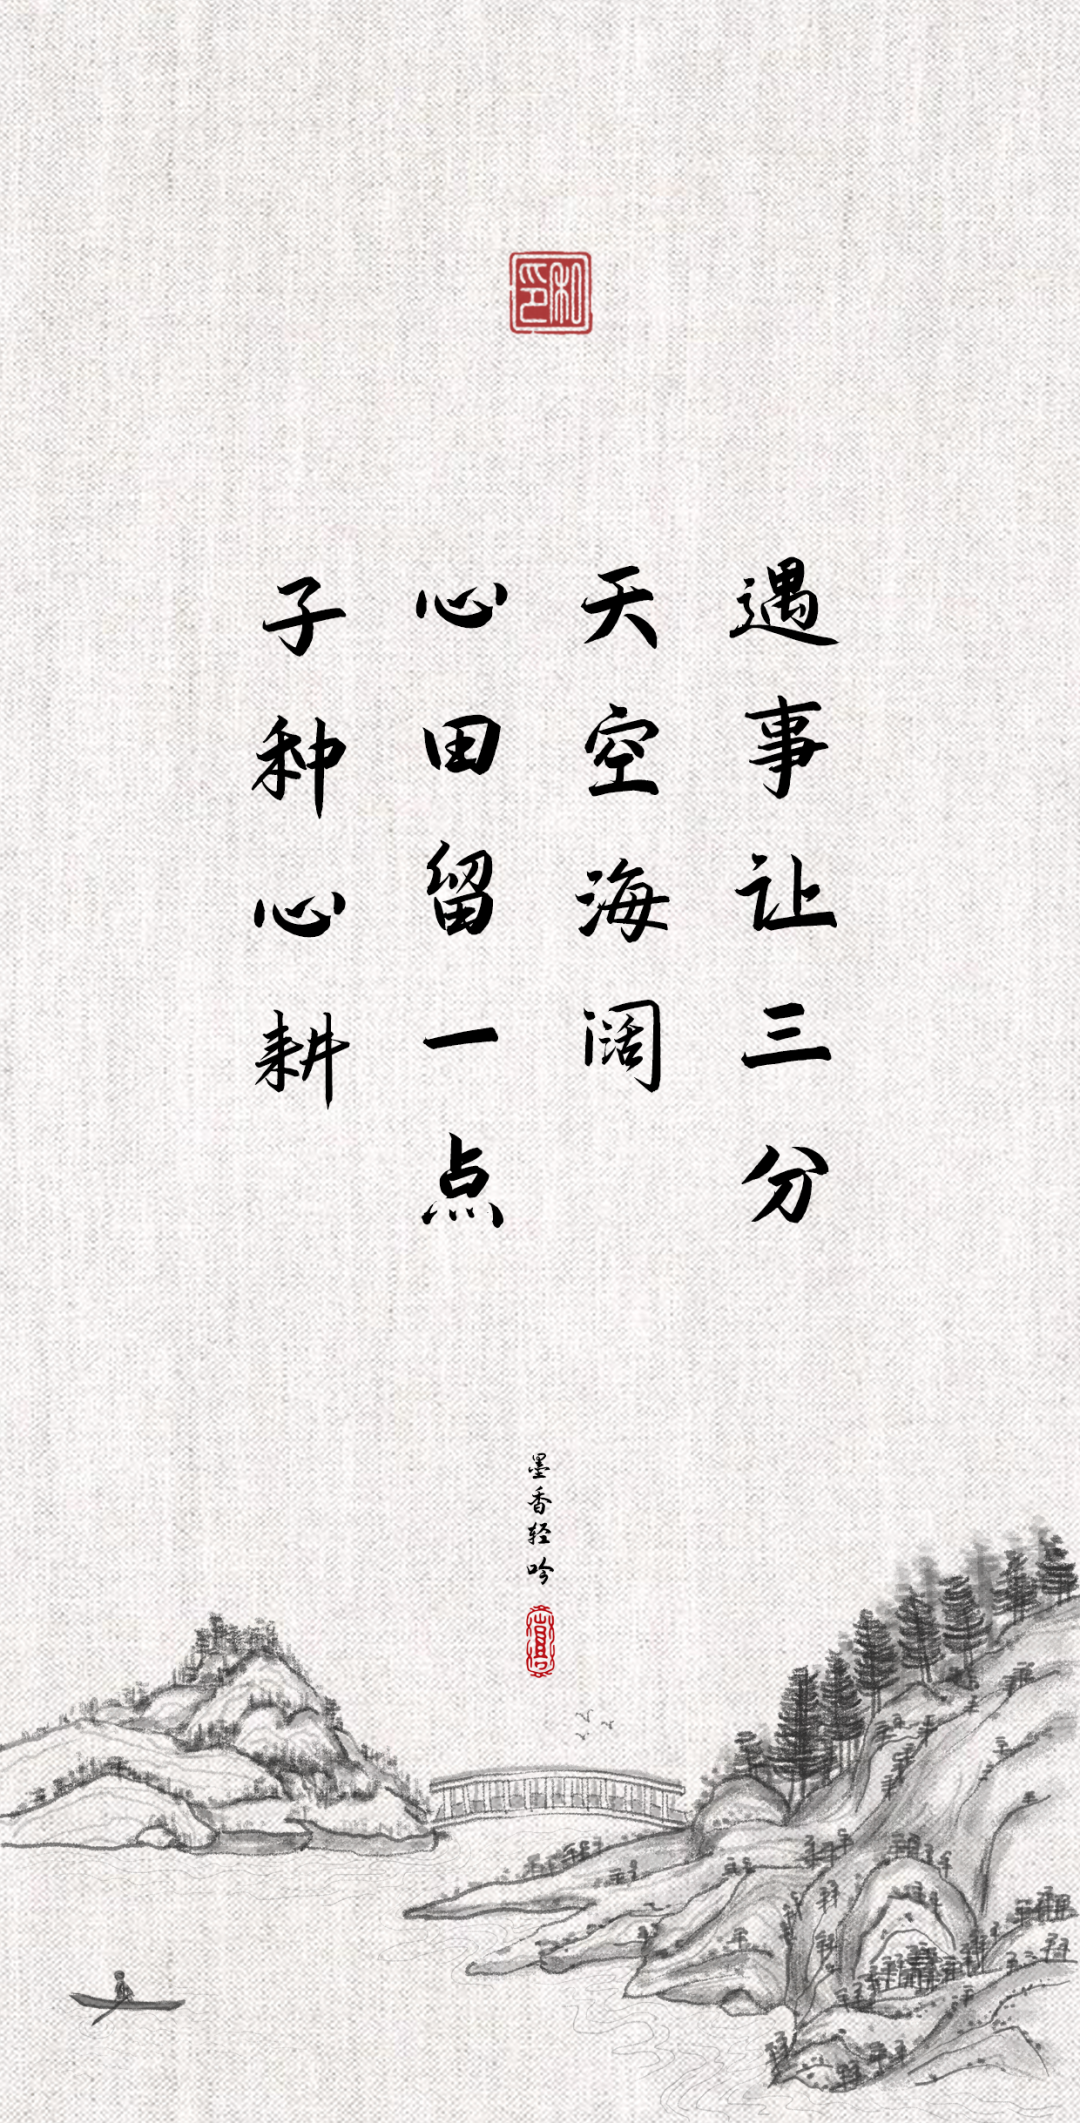 和印
遇事让三分
天空海阔
心田留一点
子种心耕
墨香轻吟